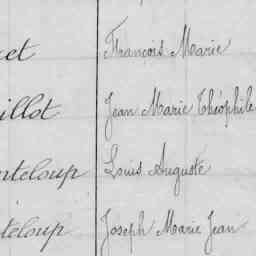 et François Marie
illot Jean Marie Théophile
nteloup Louis Auguste
teloup Joseph Marie Jean